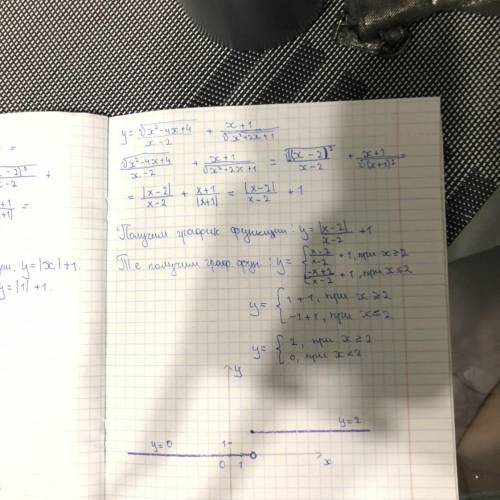 =
-2)²
x-2
+
x+1
|x+1|
=
ии: y=|x|+1.
y=|1|+1.
y = √(x²-4x+4)/(x-2) + (x+1)/√(x²+2x+1)
√(x²-4x+4)/(x-2) + (x+1)/√(x²+2x+1) = √((x-2)²)/(x-2) + (x+1)/√((x+1)²) =
= |x-2|/(x-2) + (x+1)/|x+1| = |x-2|/(x-2) + 1
Получим график функции: y = |x-2|/(x-2) + 1
Т.е получим граф. фун.: y = { (x-2)/(x-2) + 1, при x≥2
(-x+2)/(x-2) + 1, при x≤2
y = { 1+1, при x≥2
-1+1, при x≤2
y = { 2, при x≥2
0, при x<2
y
y=2
y=0
1
0 1
x